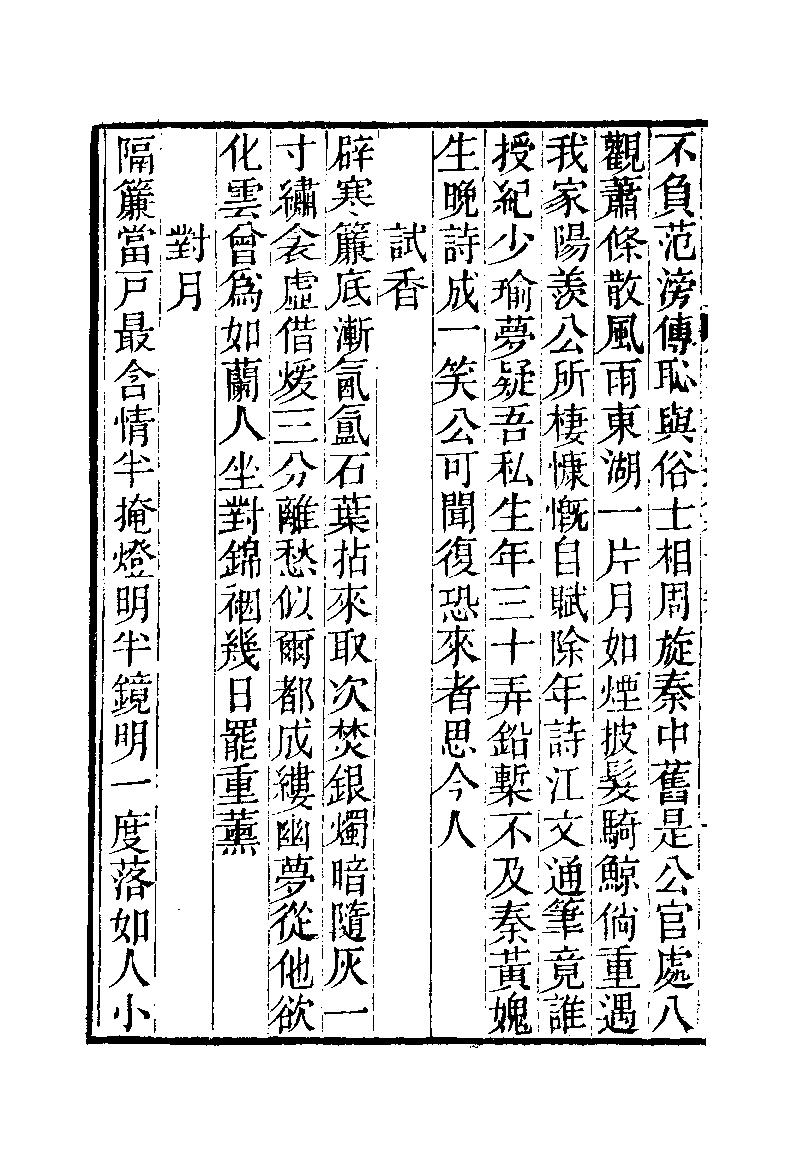 不負范滂傳恥與俗士相周旋秦中舊是公官處八
觀蕭條散風雨東湖一片月如煙披髮騎鯨倘重遇
我家陽羨公所棲慷慨自賦除年詩江文通筆竟誰
授紀少瑜夢疑吾私生年三十弄鉛槧不及秦黃媿
生晚詩成一笑公可聞復恐來者思今人
試香
辟寒簾底漸氤氳石葉拈來取次焚銀燭暗隨灰一
寸繡衾虛借煖三分離愁似爾都成縷幽夢從他欲
化雲曾爲如蘭人坐對錦裀幾日罷重薰
對月
隔簾當戸最含情半掩燈明半鏡明一度落如人小